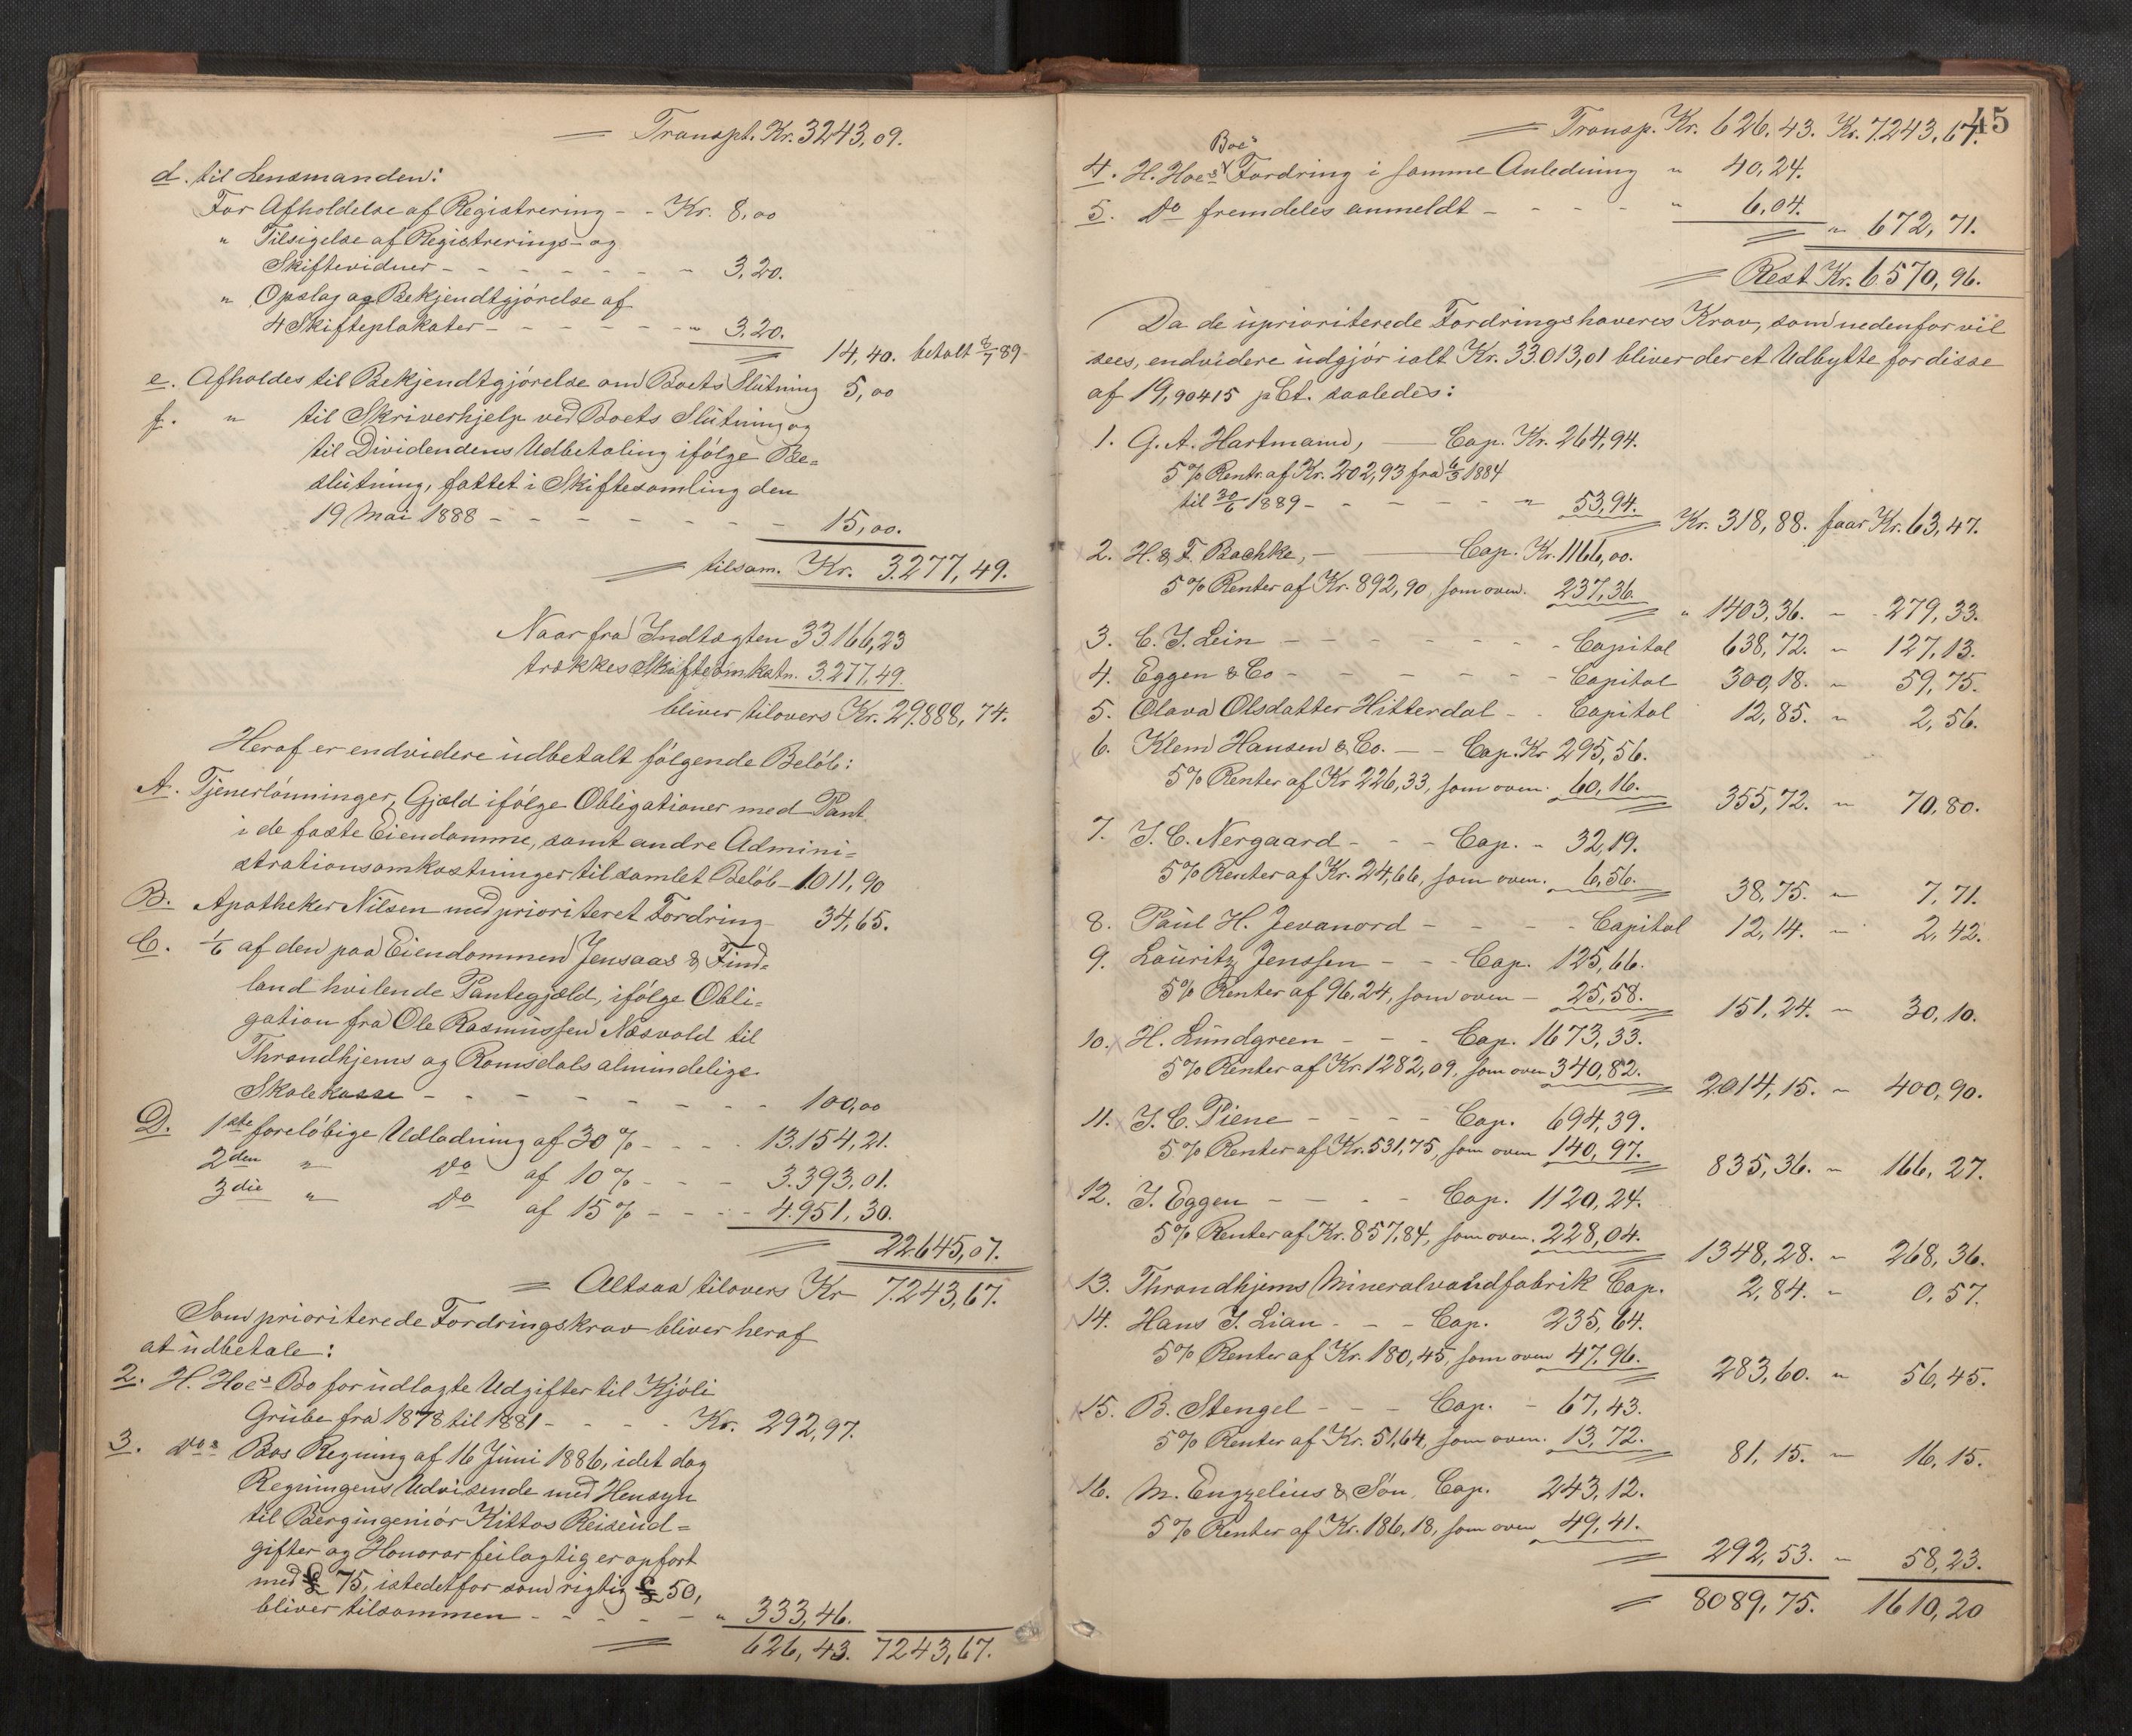 Transpt. Kr. 3243,09.
d. til Lensmanden:
For Afholdelse af Registrering - - Kr. 8,00
" Tilsigelse af Registrerings- og
Skiftevidner - - - - - - - " 3,20.
" Opslag og Bekjendtgjørelse af
4 Skifteplakater - - - - - - " 3,20.
14,40. betalt 8/7 89
e. Afholdes til Bekjendtgjørelse om Boets Slutning 5,00
f. " til Skriverhjelp ved Boets Slutning og
til Dividendens Udbetaling ifølge Be=
slutning, fattet i Skiftesamling den
19 Mai 1888 - - - - - - - - 15,00.
tilsam. Kr. 3277,49.
Naar fra Indtægten 33166,23
trækkes Skifteomkstn. 3.277,49.
bliver tilovers Kr. 29.888,74.
Heraf er endvidere udbetalt følgende Beløb:
A. Tjenerlønninger, Gjæld ifølge Obligationer med Pant
i de faste Eiendomme, samt andre Admini=
strationsomkostninger tilsamlet Beløb - 1.011,90
B. Apotheker Nilsen med prioriteret Fordring 34,65.
C. 1/6 af den paa Eiendommen Jensaas & Find=
land hvilende Pantegjæld, ifølge Obli=
gation fra Ole Rasmussen Næsvold til
Throndhjems og Romsdals almindelige
Skolekasse - - - - - - - - - 100,00
D. 1ste foreløbige Udlodning af 30% - - - 13.154,21.
2den " do af 10% - - - 3.393,01.
3die " do af 15% - - - - 4.951,30.
22645,07.
Altsaa tilovers Kr 7.243,67.
Som prioriterede Fordringskrav bliver heraf
at udbetale:
2. H. Hoes Bo for udlagte Udgifter til Kjøli
Grube fra 1878 til 1881 - - - - Kr. 292,97.
3. dos Bos Regning af 16 Juni 1886, idet dog
Regningens Udvisende med Hensyn
til Bergingeniør Kittos Reiseud=
gifter og Honorar feilagtig er opført
med £ 75, istedetfor som rigtig £ 50,
bliver tilsammen - - - - - " 333,46.
626,43. 7243,67.
45
Transp. Kr. 626,43. Kr. 7.243,67.
Boes
4. H. Hoes Fordring i samme Anledning " 40,24.
5. do fremdeles anmeldt - - - - - " 6,04.
" 672,71.
Rest Kr. 6570,96.
Da de uprioriterede Fordringshaveres Krav, som nedenfor vil
sees, endvidere udgjør ialt Kr. 33.013,01 bliver der et Udbytte for disse
af 19,90415 pCt. saaledes:
1. G. A. Hartmann, — Cap. Kr. 264,94.
5% Rentr. af Kr. 202,93 fra 6/3 1884
til 30/6 1889 - - - - - - " 53,94.
Kr. 318,88. faar Kr. 63,47.
2. H. & F. Bachke, — Cap. Kr. 1166,00.
5% Renter af Kr. 892,90, som oven. 237,36
" 1403,36. " 279,33.
3. C. J. Lein - - - - - - - Capital 638,72. " 127,13.
4. Eggen & Co - - - - - - - Capital 300,18. " 59,75.
5. Olava Olsdatter Hitterdal - - Capital 12,85. " 2,56.
6. Klem Hansen & Co. - - Cap. Kr 295,56.
5% Renter af Kr 226,33, som oven. 60,16.
355,72. " 70,80.
7. J. C. Nergaard - - - Cap. - 32,19.
5% Renter af Kr. 24,66, som oven. 6,56.
38,75. " 7,71.
8. Paul H. Jevanord - - - - Capital 12,14. " 2,42.
9. Lauritz Jenssen - - - Cap. 125,66.
5% Renter af 96,24, som oven - 25,58.
151,24. " 30,10.
10. H. Lundgreen - - - Cap. 1673,33.
5% Renter af Kr. 1282,09, som oven 340,82.
2014,15. " 400,90.
11. J. C. Piene - - - - Cap. 694,39.
5% Renter af Kr. 531,75, som oven 140,97.
835,36. " 166,27.
12. J. Eggen - - - - Cap. 1120,24.
5% Renter af Kr. 857,84, som oven. 228,04.
1348,28. " 268,36.
13. Throndhjems Mineralvandfabrik Cap. 2,84. " 0,57.
14. Hans J. Lian - - - Cap. 235,64.
5% Renter af Kr. 180,45, som oven 47,96.
283,60. " 56,45.
15. B. Stengel - - - Cap. - 67,43.
5% Renter af Kr. 51,64, som oven. 13,72.
81,15. " 16,15.
16. M. Engzelius & Søn, Cap. 243,12.
5% Renter af Kr. 186,18, som oven 49,41.
292,53. " 58,23.
8089,75. 1610,20